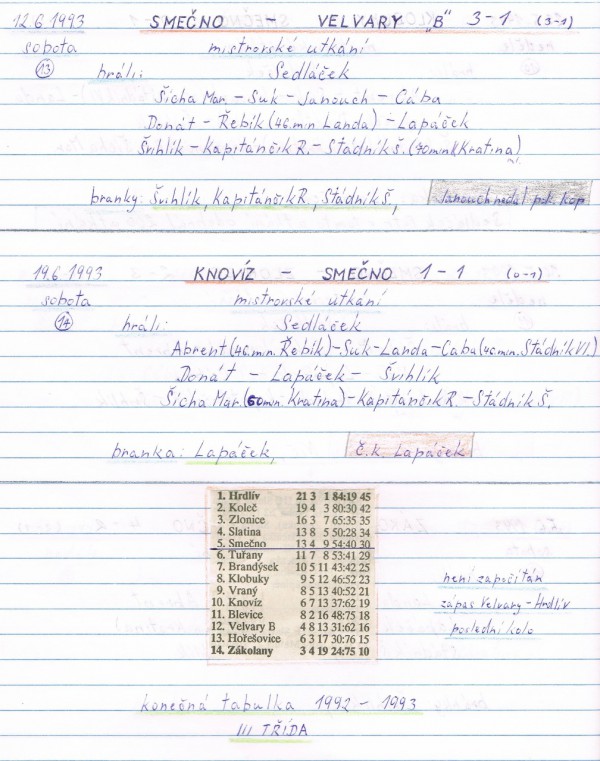 12.6.1993 SMEČNO – VELVARY „B" 3-1 (3-1)
sobota mistrovské utkání
13 hráli: Sedláček
Šícha Mar. – Suk – Janouch – Cába
Donát – Řebík (46.min Landa) – Lapáček
Švihlík – Kapitánčik R. – Stádník Š. (70min Kratina)
branky: Švihlík, Kapitánčik R., Stádník Š., Janouch nedal pok. kop
19.6.1993 KNOVÍZ – SMEČNO 1-1 (0-1)
sobota mistrovské utkání
14 hráli: Sedláček
Abrent (46.min. Řebík) – Suk – Landa – Cába (46min. Stádník Vl.)
Donát – Lapáček – Švihlík
Šícha Mar. (60min. Kratina) – Kapitánčik R. – Stádník Š.
branka: Lapáček, č.k. Lapáček
1. Hrdlív 21 3 1 84:19 45
2. Koleč 19 4 3 80:30 42
3. Zlonice 16 3 7 65:35 35
4. Slatina 13 8 5 50:28 34
5. Smečno 13 4 9 54:40 30
6. Tuřany 11 7 8 53:41 29
7. Brandýsek 10 5 11 43:42 25
8. Klobuky 9 5 12 46:52 23
9. Vraný 8 5 13 40:52 21
10. Knovíz 6 7 13 37:62 19
11. Blevice 8 2 16 48:75 18
12. Velvary B 4 8 13 31:62 16
13. Hořešovice 6 3 17 30:76 15
14. Zákolany 3 4 19 24:75 10
není započítán
zápas Velvary – Hrdlív
poslední kolo
konečná tabulka 1992 – 1993
III TŘÍDA